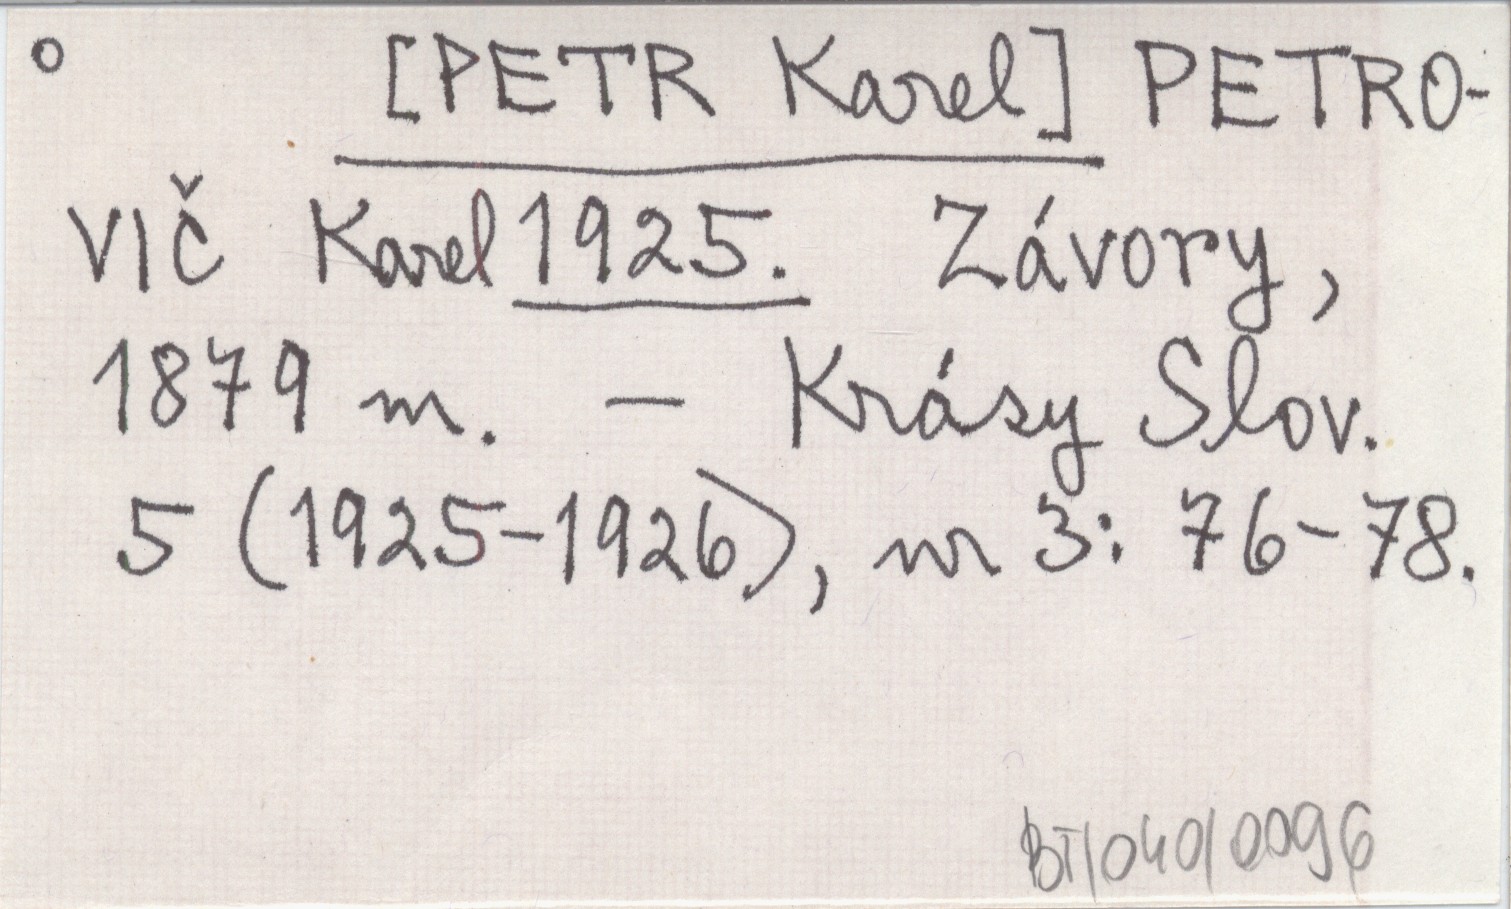 o [PETR Karel] PETRO-
VIČ Karel 1925. Závory,
1879 m. — Krásy Slov.
5 (1925-1926), nr 3: 76-78.
BT/040/0096